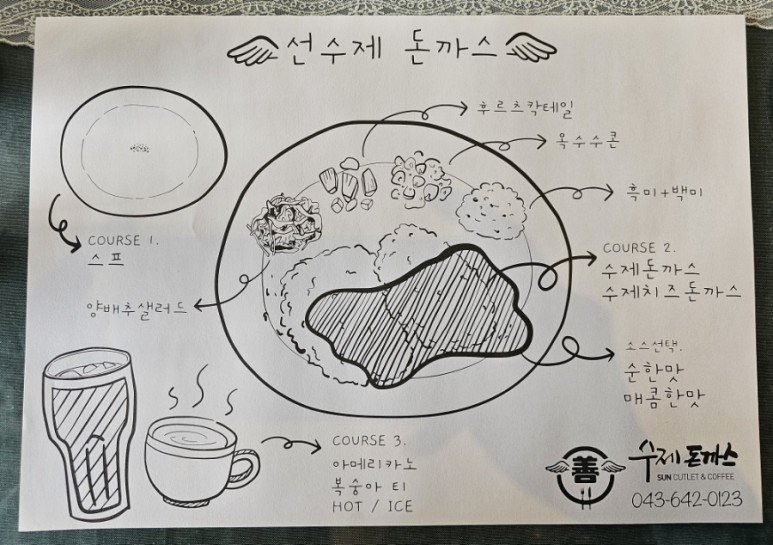 선수제 돈까스
후르츠칵테일
옥수수콘
흑미+백미
COURSE 1.
스프
양배추샐러드
COURSE 2.
수제돈까스
수제치즈돈까스
소스선택.
순한맛
매콤한맛
COURSE 3.
아메리카노
복숭아 티
HOT / ICE
善
수제 돈까스
SUN CUTLET & COFFEE
043-642-0123